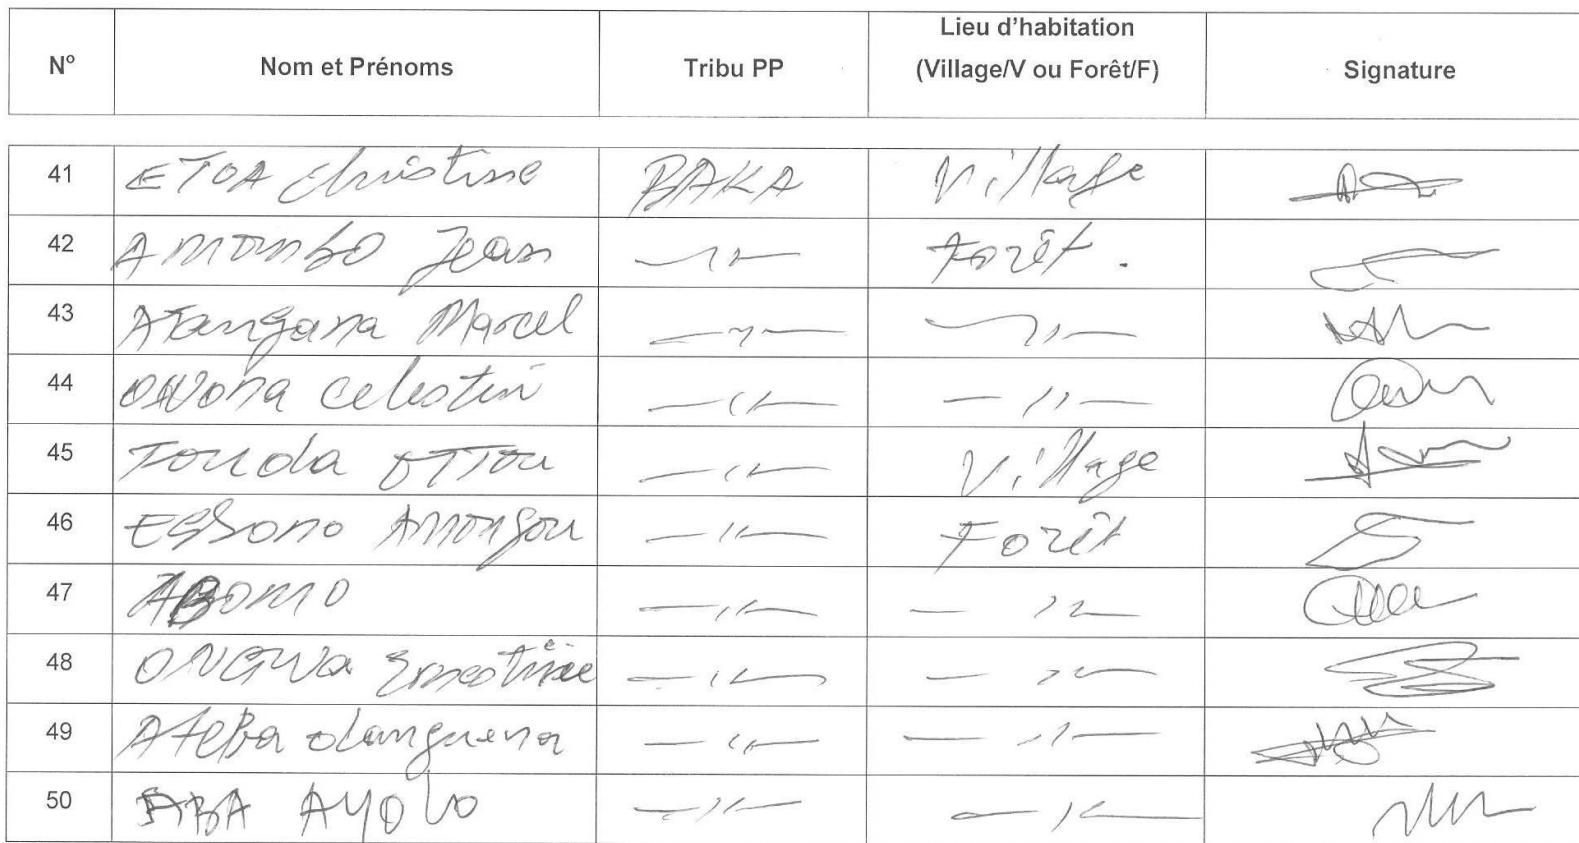 N° Nom et Prénoms Tribu PP Lieu d'habitation (Village/V ou Forêt/F) Signature
41 ETOA Christine BAKA Village
42 Amombo Jean —〃— Forêt.
43 Atangana Marcel —〃— —〃—
44 Onvona Celestin —〃— —〃—
45 Fouda OTTou —〃— Village
46 ESSono Amougou —〃— Forêt
47 ABOMO —〃— —〃—
48 ONGWa Ernestine —〃— —〃—
49 Ateba olanguena —〃— —〃—
50 ABA AYOLO —〃— —〃—